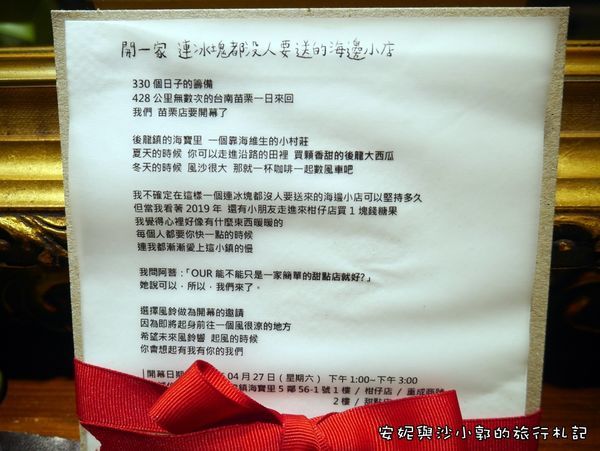 開一家 連冰塊都沒人要送的海邊小店
330 個日子的籌備
428 公里無數次的台南苗栗一日來回
我們 苗栗店要開幕了
後龍鎮的海寶里 一個靠海維生的小村莊
夏天的時候 你可以走進沿路的田裡 買顆香甜的後龍大西瓜
冬天的時候 風沙很大 那就一杯咖啡一起數風車吧
我不確定在這樣一個連冰塊都沒人要送來的海邊小店可以堅持多久
但當我看著 2019 年 還有小朋友走進來柑仔店買 1 塊錢糖果
我覺得心裡好像有什麼東西暖暖的
每個人都要你快一點的時候
連我都漸漸愛上這小鎮的慢
我問阿蕾:「OUR 能不能只是一家簡單的甜點店就好?」
她說可以,所以,我們來了。
選擇風鈴做為開幕的邀請
因為即將起身前往一個風很涼的地方
希望未來風鈴響 起風的時候
你會想起有我有你的我們
|開幕日期 04 月 27 日 ( 星期六 ) 下午 1:00~下午 3:00
鎮海寶里 5 鄰 56-1 號 1 樓 / 柑仔店 / 重成商號
2 樓 / 甜點
安妮與沙小郭的旅行札記